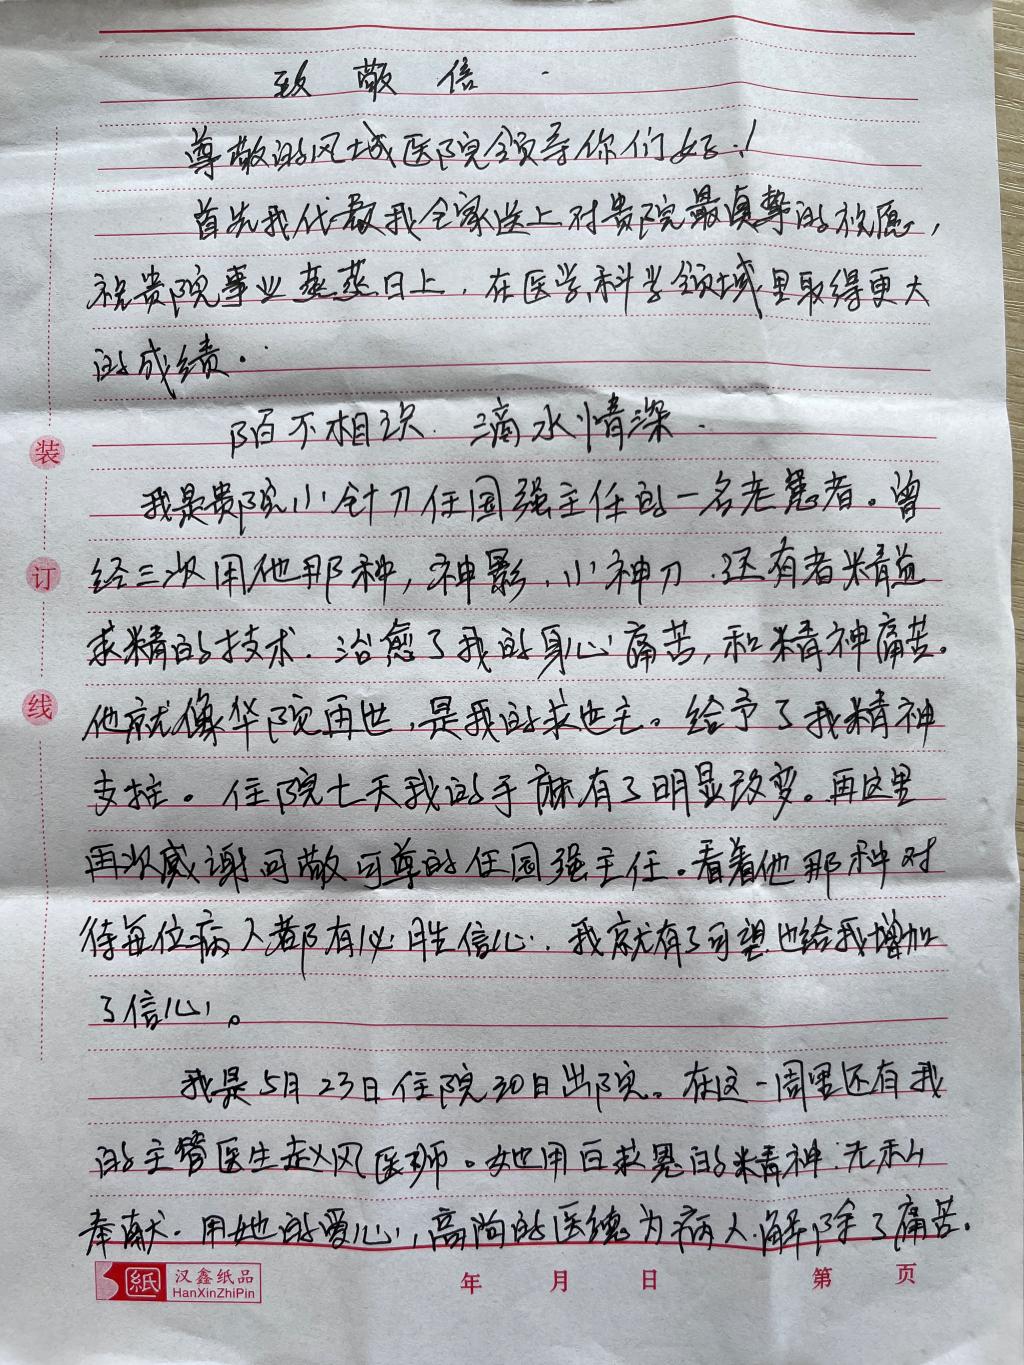 致敬信
尊敬的风城医院领导你们好！
首先我代表我全家送上对贵院最真挚的祝愿，
祝贵院事业蒸蒸日上，在医学科学领域里取得更大
的成绩。
陌不相识．滴水情深．
我是贵院小针刀任国强主任的一名老患者。曾
经三次用他那种，神影、小神刀．还有者精益
求精的技术．治愈了我的身心痛苦，和精神痛苦。
他就像华院再世，是我的求世主。给予了我精神
支拄。住院七天我的手麻有了明显改变。再这里
再次感谢可敬可尊的任国强主任。看着他那种对
待每位病人都有必胜信心．我就有了可望也给我增加
了信心。
我是5月23日住院30日出院。在这一周里还有我
的主管医生赵风医师。她用白求恩的精神．无私
奉献．用她的爱心，高尚的医德为病人解除了痛苦。
装
订
线
紙
汉鑫纸品
HanXinZhiPin
年 月 日 第 页